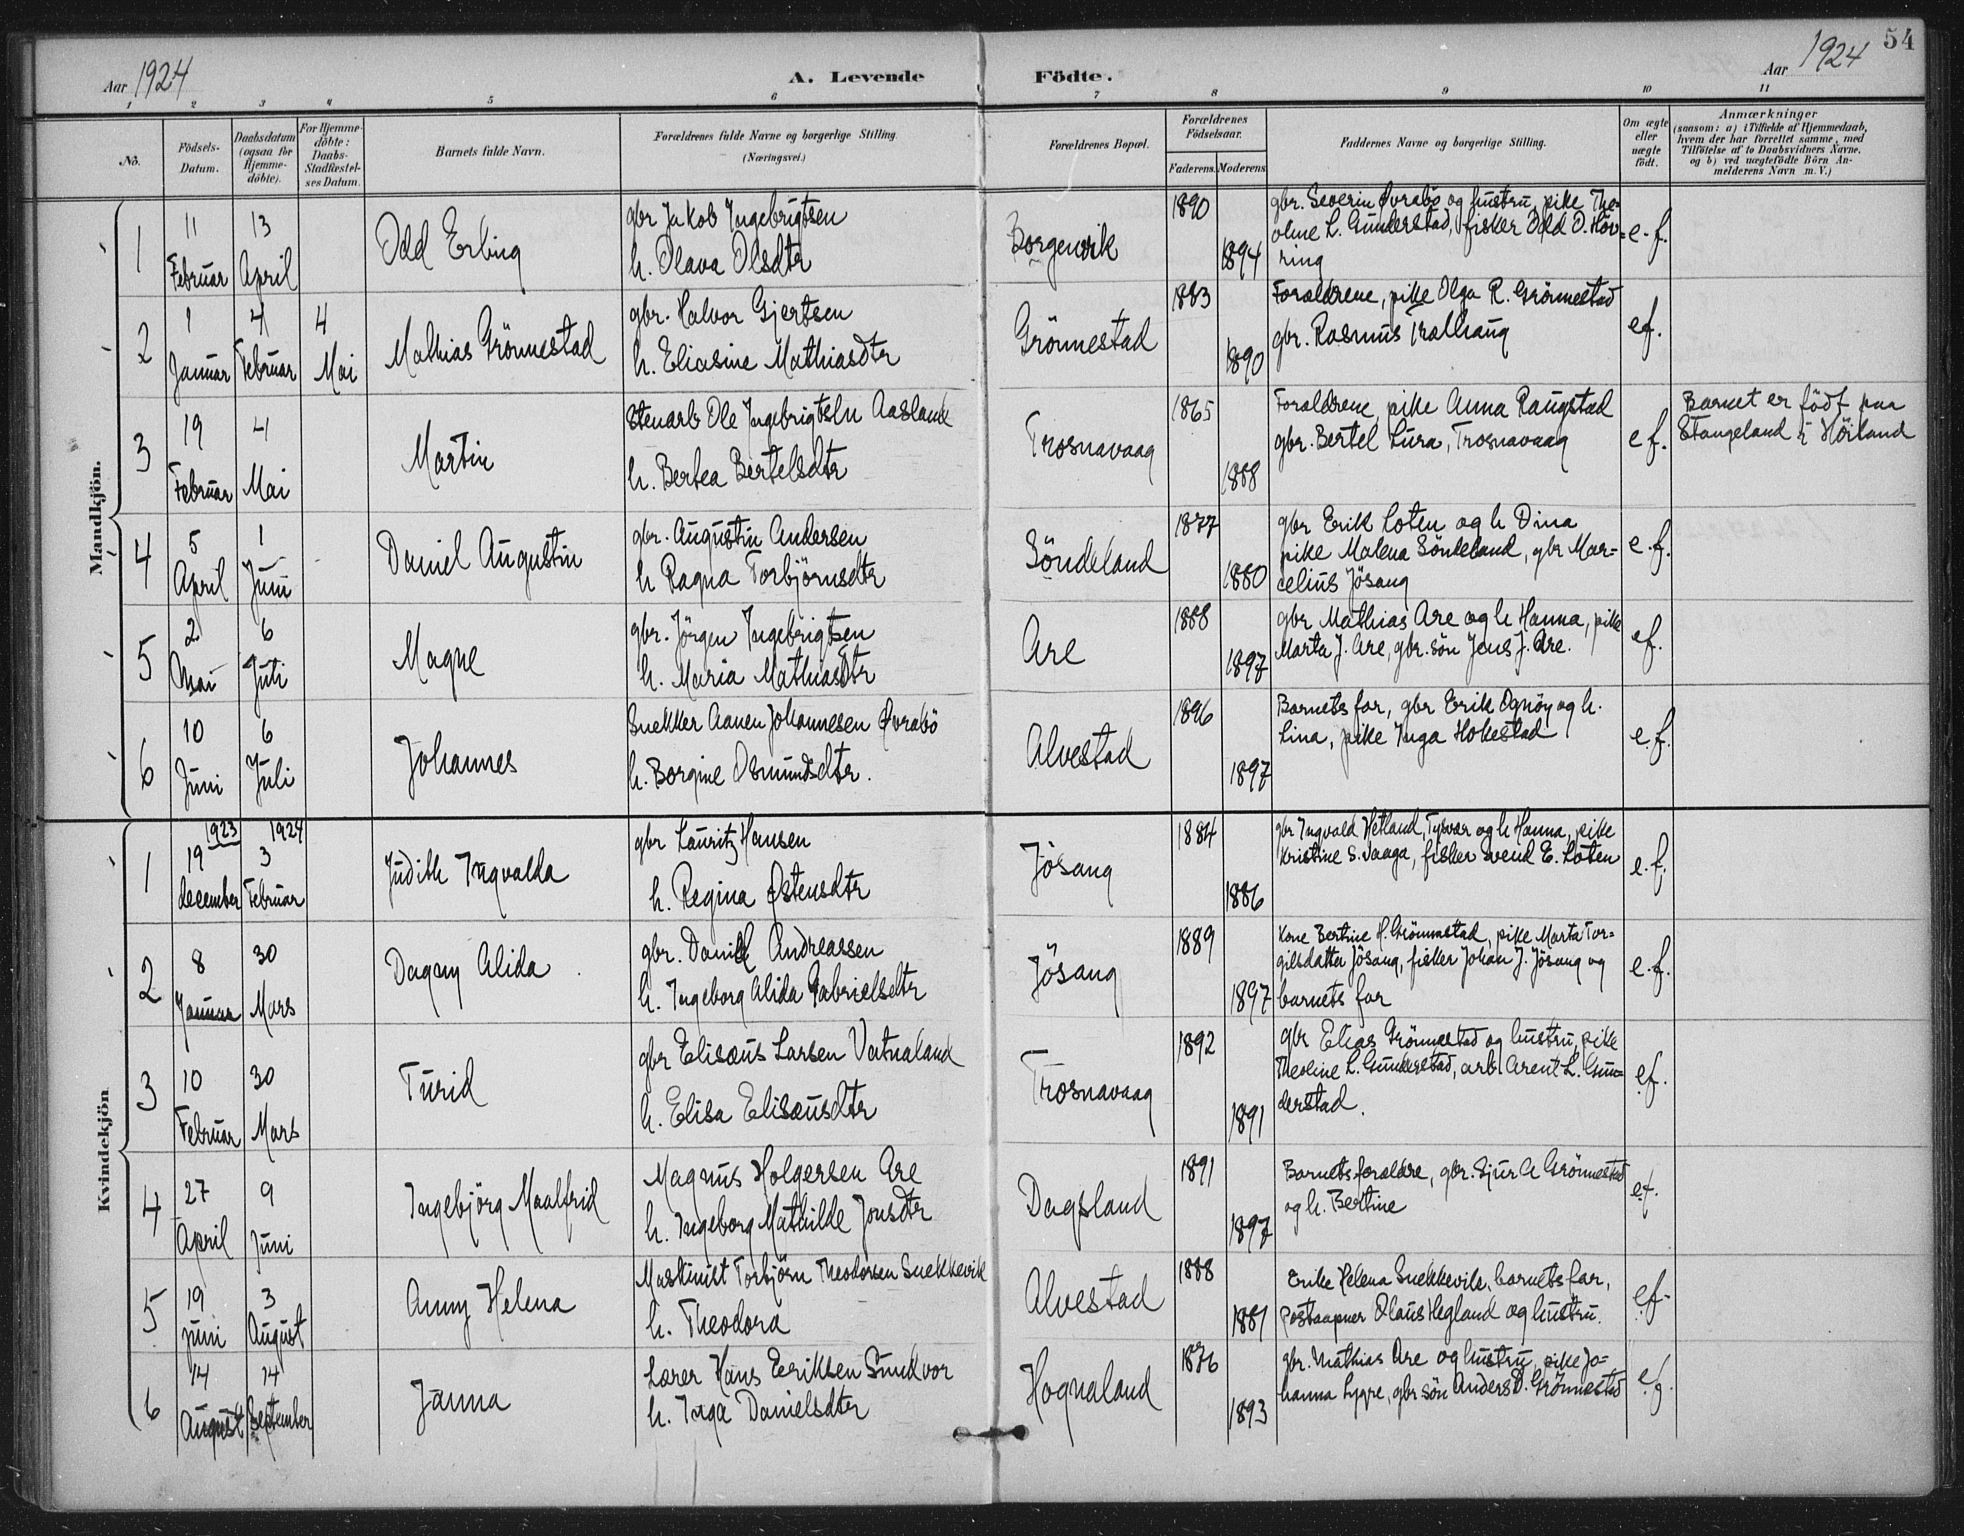 54
Aar 1924
A. Levende Födte.
Aar 1924
1 2 3 4 5 6 7 8 9 10 11
No.
Födsels-
Datum.
Daabsdatum
(ogsaa for
Hjemme-
döbte).
For Hjemme-
döbte:
Daabs-
Stadfæstel-
ses Datum.
Barnets fulde Navn.
Forældrenes fulde Navne og borgerlige Stilling.
(Næringsvei.)
Forældrenes Bopæl.
Forældrenes
Födselsaar.
Faderens. Moderens.
Faddernes Navne og borgerlige Stilling.
Om ægte
eller
uægte
födt.
Anmærkninger
(saasom: a) i Tilfælde af Hjemmedaab,
hvem der har forrettet samme, med
Tilföielse af to Daabsvidners Navne,
og b) ved uægtefödte Börn An-
melderens Navn m. V.)
Mandkjön.
1
11
Februar
13
April
Odd Erling
gbr Jakob Ingebrigtsen
h. Olava Olsdtr
Borgenvik
1890
1894
gbr. Severin Øvrabö og hustru, pike The-
oline L. Gunderstad, fisker Odd O. Höv-
ring
e.f.
2
1
Januar
4
Februar
4
Mai
Mathias Grönnestad
gbr. Halvor Gjertsen
h. Eliasine Mathiasdtr
Grönnestad
1883
1890
Foraldrene, pike Olga R. Grönnestad
gbr. Rasmus Trælhaug
ef.
3
19
Februar
4
Mai
Martin
Stenarb Ole Ingebrigtsen Aasland
h. Bertea Bertelsdtr
Trosnavaag
1865
1888
Foraldrene, pike Anna Raugstad
gbr. Bertel Lura, Trosnavaag
e f.
Barnet er födt paa
Stangeland i Höiland
4
5
April
1
Juni
Daniel Augustin
gbr. Augustin Andersen
h Ragna Torbjörnsdtr
Söndeland
1877
1880
gbr Erik Loten og h Dina
pike Malena Söndeland, gbr Mar-
celius Jösang
e.f.
5
2
Mai
6
Juli
Magne
gbr. Jörgen Ingebrigtsen
h. Maria Mathiasdtr
Are
1888
1897
gbr Mathias Are og h Hanna, pike
Marta J. Are, gbr. sön Jens J. Are.
ef.
6
10
Juni
6
Juli
Johannes
Snekker Aanen Johannesen Øvrabö
h. Borgine Osmundsdtr.
Alvestad
1896
1897
Barnets far, gbr Erik Ognöy og h.
Lina, pike Inga Hokestad
e.f.
Kvindekjön
1
1923
19
december
1924
3
Februar
Judith Ingvalda
gbr Lauritz Hansen
h. Regina Østensdtr
Jösang
1884
1886
gbr Ingvald Hetland, Tysvær og h Hanna, pike
Kristine S. Vaaga, fisker Svend E. Loten
e.f.
2
8
Januar
30
Mars
Dagny Alida
gbr. Daniel Andreassen
h. Ingeborg Alida Gabrielsdtr
Jösang
1889
1897
Kone Bertine H. Grönnestad, pike Marta Tor-
gilsdatter Jösang, fisker Johan J. Jösang og
barnets far
e.f.
3
10
Februar
30
Mars
Turid
gbr Elisæus Larsen Vatnaland
h. Elisa Elisæusdtr
Trosnavaag
1892
1891
gbr Elias Grönnestad og hustru, pike
Theoline L. Gunderstad, arb. Arent L. Gun-
derstad.
e.f.
4
27
April
9
Juni
Ingebjörg Maalfrid
Magnus Holgersen Are
h. Ingeborg Mathilde Jonsdtr
Dagsland
1891
1897
Barnets foraldre, gbr. Sjur A Grönnestad
og h. Bertine
ef.
5
19
juni
3
August
Anny Helena
Maskinist Torbjörn Theodorsen Snekkevik
h. Theodora
Alvestad
1888
1881
Erike Helena Snekkevik, barnets far,
postaapner Olaus Hegland og hustru.
ef.
6
14
August
14
September
Janna
Lærer Hans Eeriksen Sundvor
h. Inga Danielsdtr
Hognaland
1876
1893
gbr. Mathias Are og hustru, pike Jo-
hanna Lygre, gbr sön Anders D. Grönnestad
e.f.